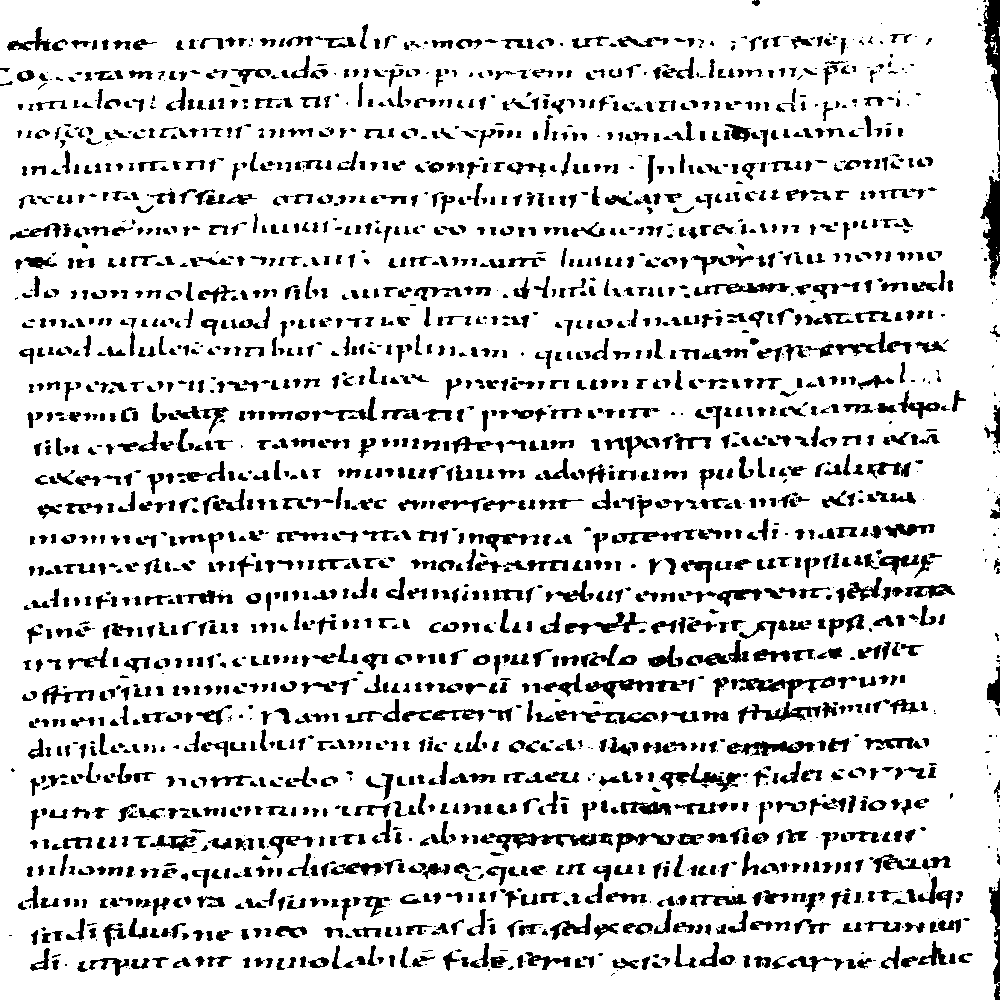 et homine ut inmortalis emortuo ut aetern
ergo ad dō in epō sed lumine
tudo eius diuinitatis habemus & significationem di patri
nosq; excitantis inmortuo & xpm ihm non aliud quam ihm
in diuinitatis plenitudine confitendum · In hoc igitur conscio
securitatis suae otio mens spebus suis l&a requieuerat inter
cessione mortis huius usque eo non metuens ut etiam reputa
r& in uita aeternitatis · uitam autē huius corporis sui non mo
do non molestam sibi aut egram arbitrabatur ut eam egris medi
cinam quod quod pueritiae litteras quod naufragis natatum ·
quod adulescentibus disciplinam · quod militiam esse crederet
imperatoris rerum scilic& praesentium tolerantiam ad
praemiū beatę inmortalitatis proficiente · quin & iam id quod
sibi credebat · tamen p ministerium inpositi sacerdotii &iā
c&eris praedicabat munus suum ad officium publicę salutis
extendens · sed inter haec emerserunt desperata mise
in omnes impiae temeritatis ingenia potentem di · naturam
naturae suae infirmitate moderantium · Neque ut ipsi usque
ad infinitatem opinandi de infinitis rebus emergerent · sed intra
finē sensus sui indefinita concluderent · essent que ipsi arbi
tri religionis · cum religionis opus in solo oboedientiae esset
officio sui inmemores diuinorū neglegentes praeceptorum
emendatores · Nam ut de ceteris hereticorum stultissimis stu
diis sileam · de quibus tamen sicubi occasionem sermonis ratio
prebebit non tacebo · Quidam ita euangelicę fidei corrū
punt sacramentum ut sub unius di pia tantum professione
natiuitatē unigeniti di · abnegent ut protensio sit potius
in hominē · quam discensio neque ut qui filius hominis secun
dum tempora adsumptę carnis fuit idem antea semp fuit adq;
sit di filius ne in eo natiuitas di sit sed ex eodem idem sit ut unius
di · ut putant inuiolabilē fidē series ex solido in carnē deduc